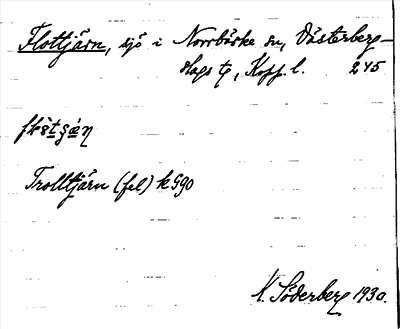 Flottjärn, sjö i Norrbärke sn, Västerberg-
slags tg, Kopp. l. 245
Trolltjärn (fel) k 990
K. Söderberg 1930.